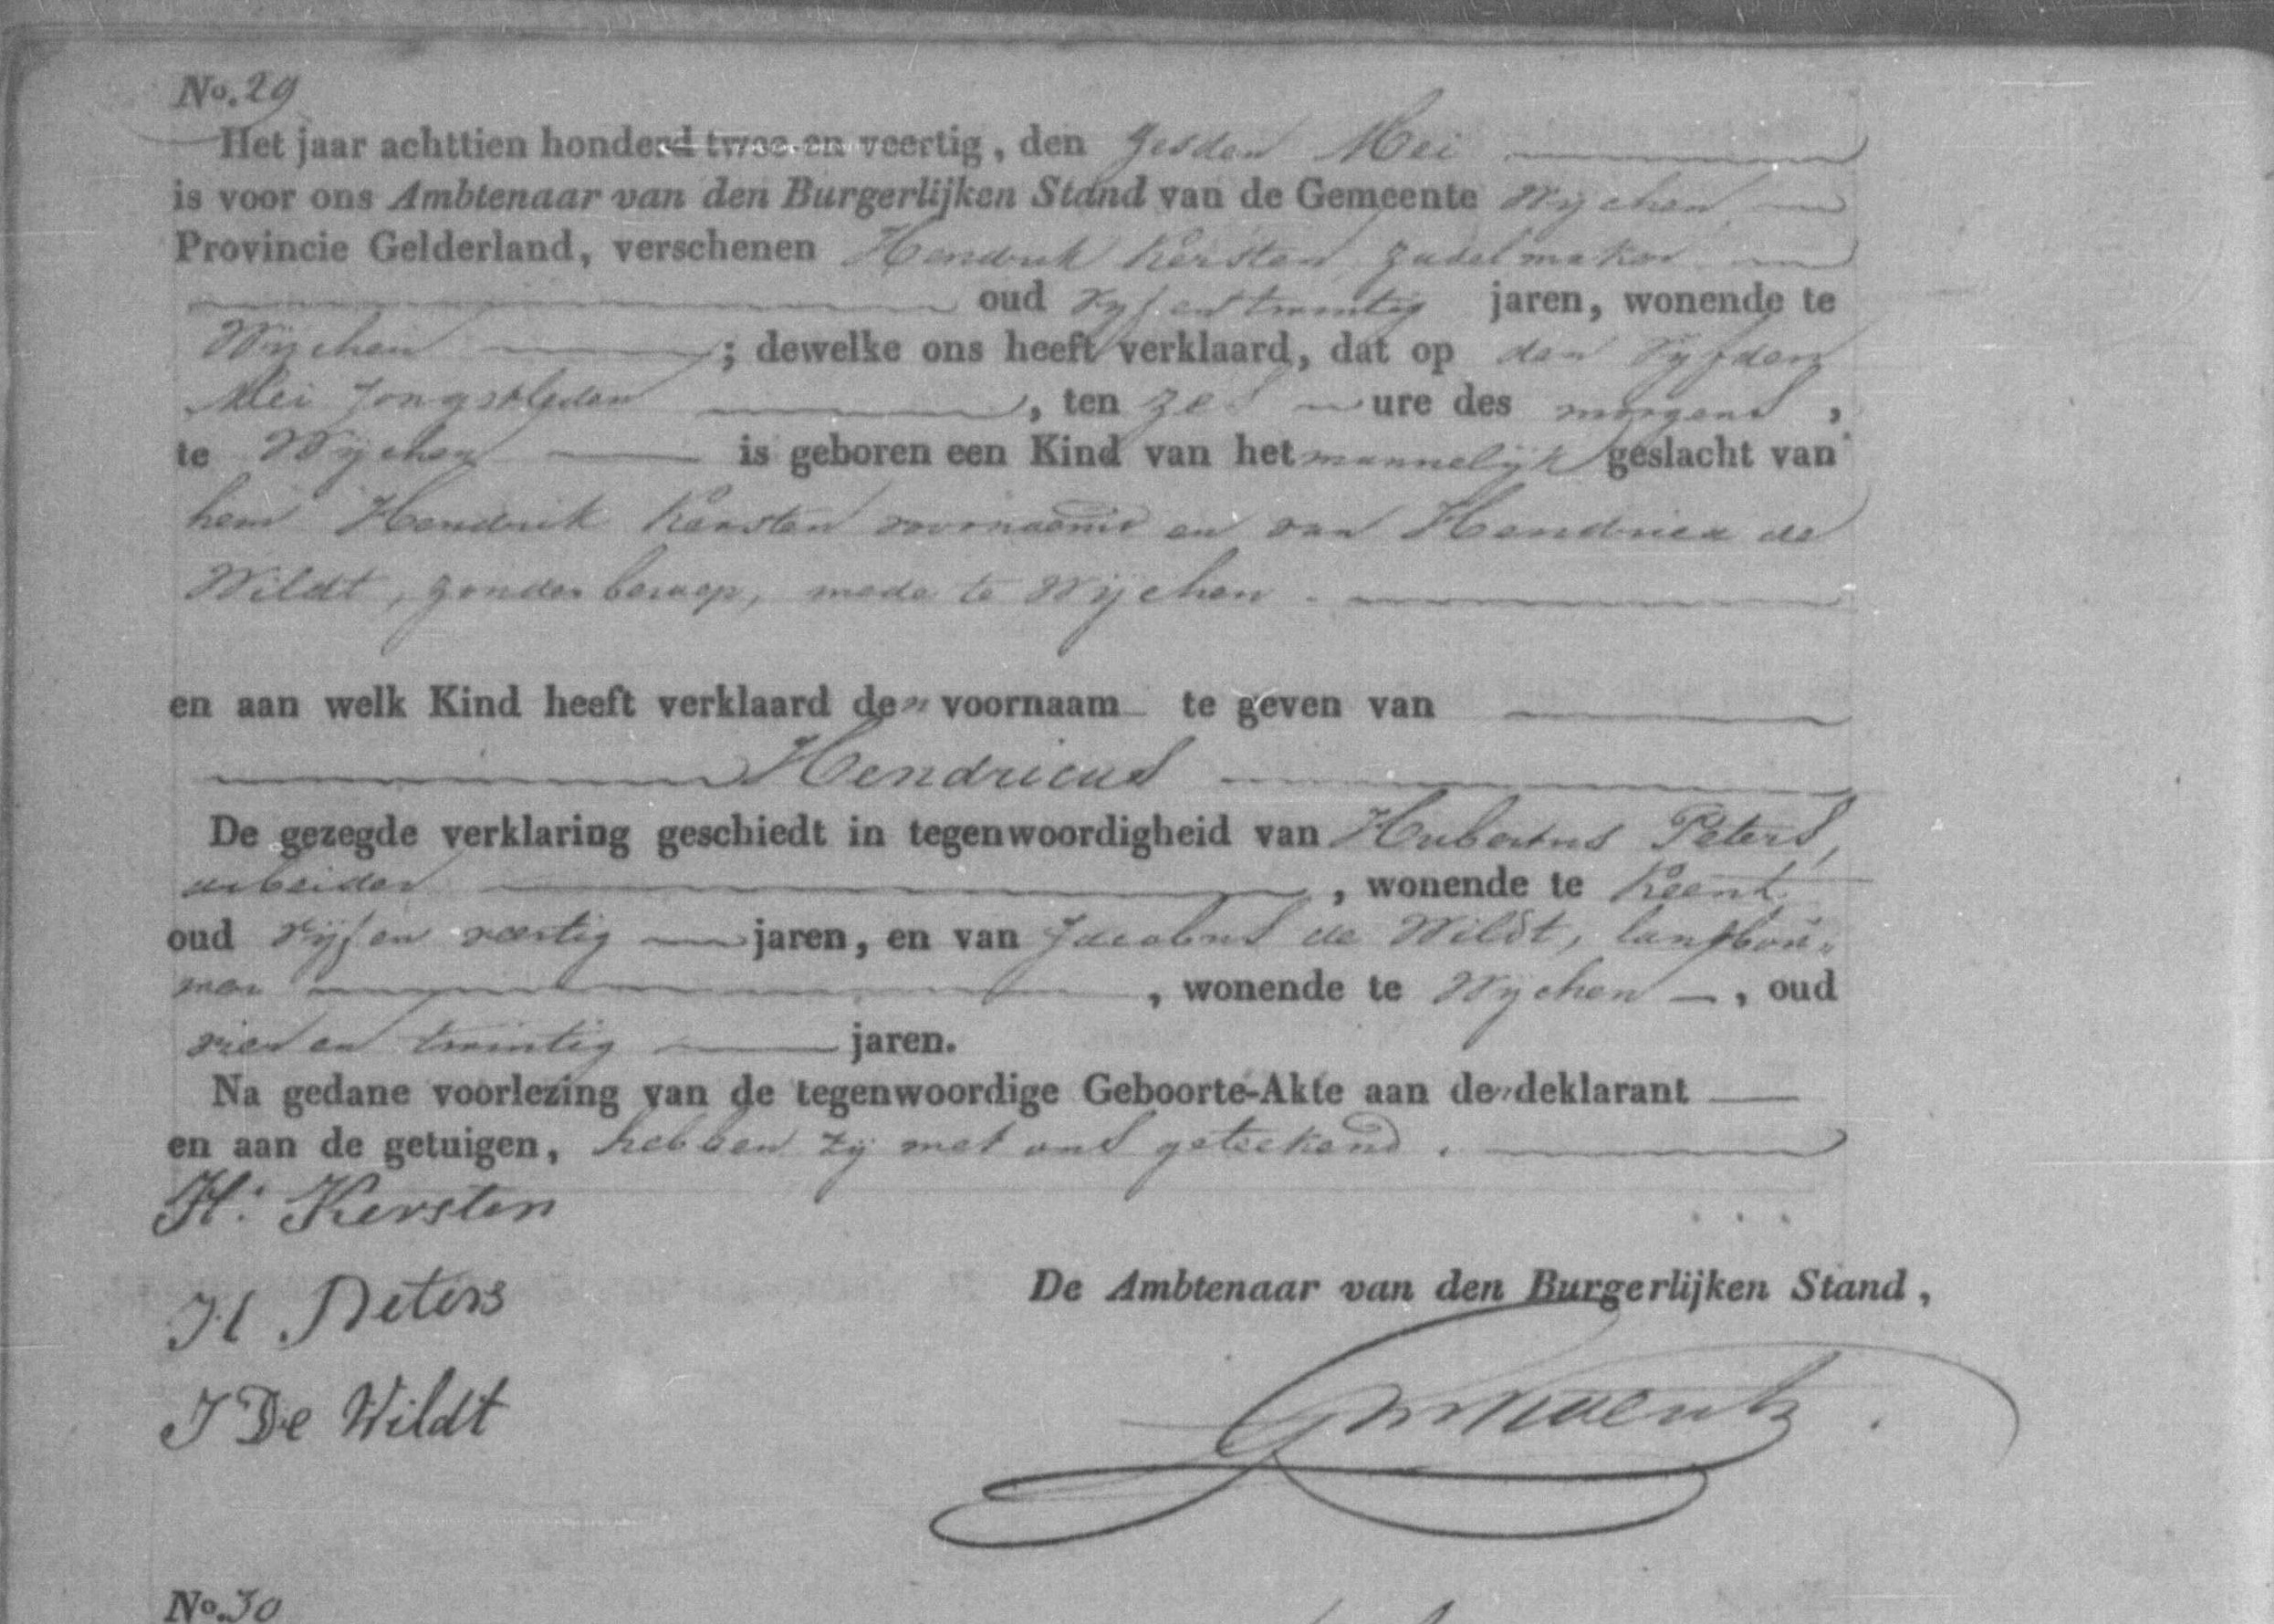 No. 29
Het jaar achttien honderd twee en veertig, den zesden Mei
is voor ons Ambtenaar van den Burgerlijken Stand van de Gemeente Wijchen
Provincie Gelderland, verschenen Hendrik Kersten zadelmaker
oud vijf en twintig jaren, wonende te
Wijchen ; dewelke ons heeft verklaard, dat op den vijfden
Mei jongstleden , ten zes ure des morgens ,
te Wijchen is geboren een Kind van het mannelijk geslacht van
hem Hendrik Kersten voornoemd en van Hendrica de
Wildt, zonder beroep, mede te Wijchen.
en aan welk Kind heeft verklaard den voornaam te geven van
Hendricus
De gezegde verklaring geschiedt in tegenwoordigheid van Hubertus Peters,
arbeider , wonende te Keent
oud vijf en veertig jaren, en van Jacobus de Wildt, landbou„
wer , wonende te Wijchen , oud
vier en twintig jaren.
Na gedane voorlezing van de tegenwoordige Geboorte-Akte aan den deklarant
en aan de getuigen, hebben zij met ons geteekend.
H. Kersten
H Peters
De Ambtenaar van den Burgerlijken Stand,
J De Wildt
No. 30